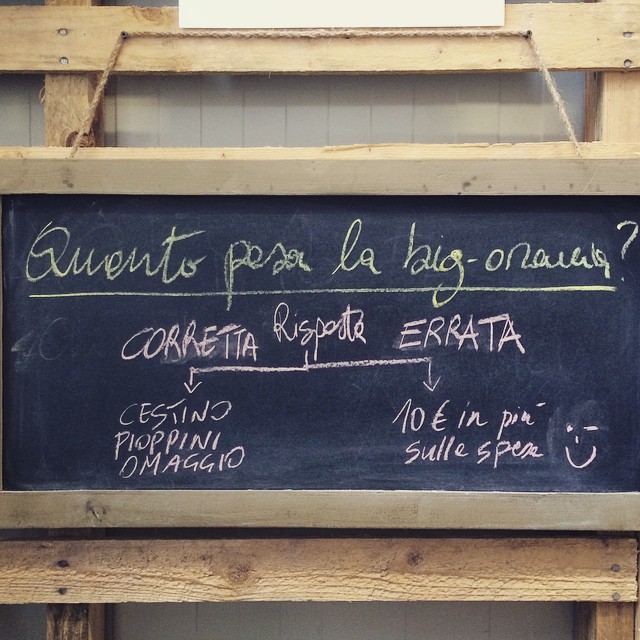 Quanto pesa la big-orancia?
CORRETTA Risposta ERRATA
CESTINO
PIOPPINI
OMAGGIO
10 € in più
sulla spesa